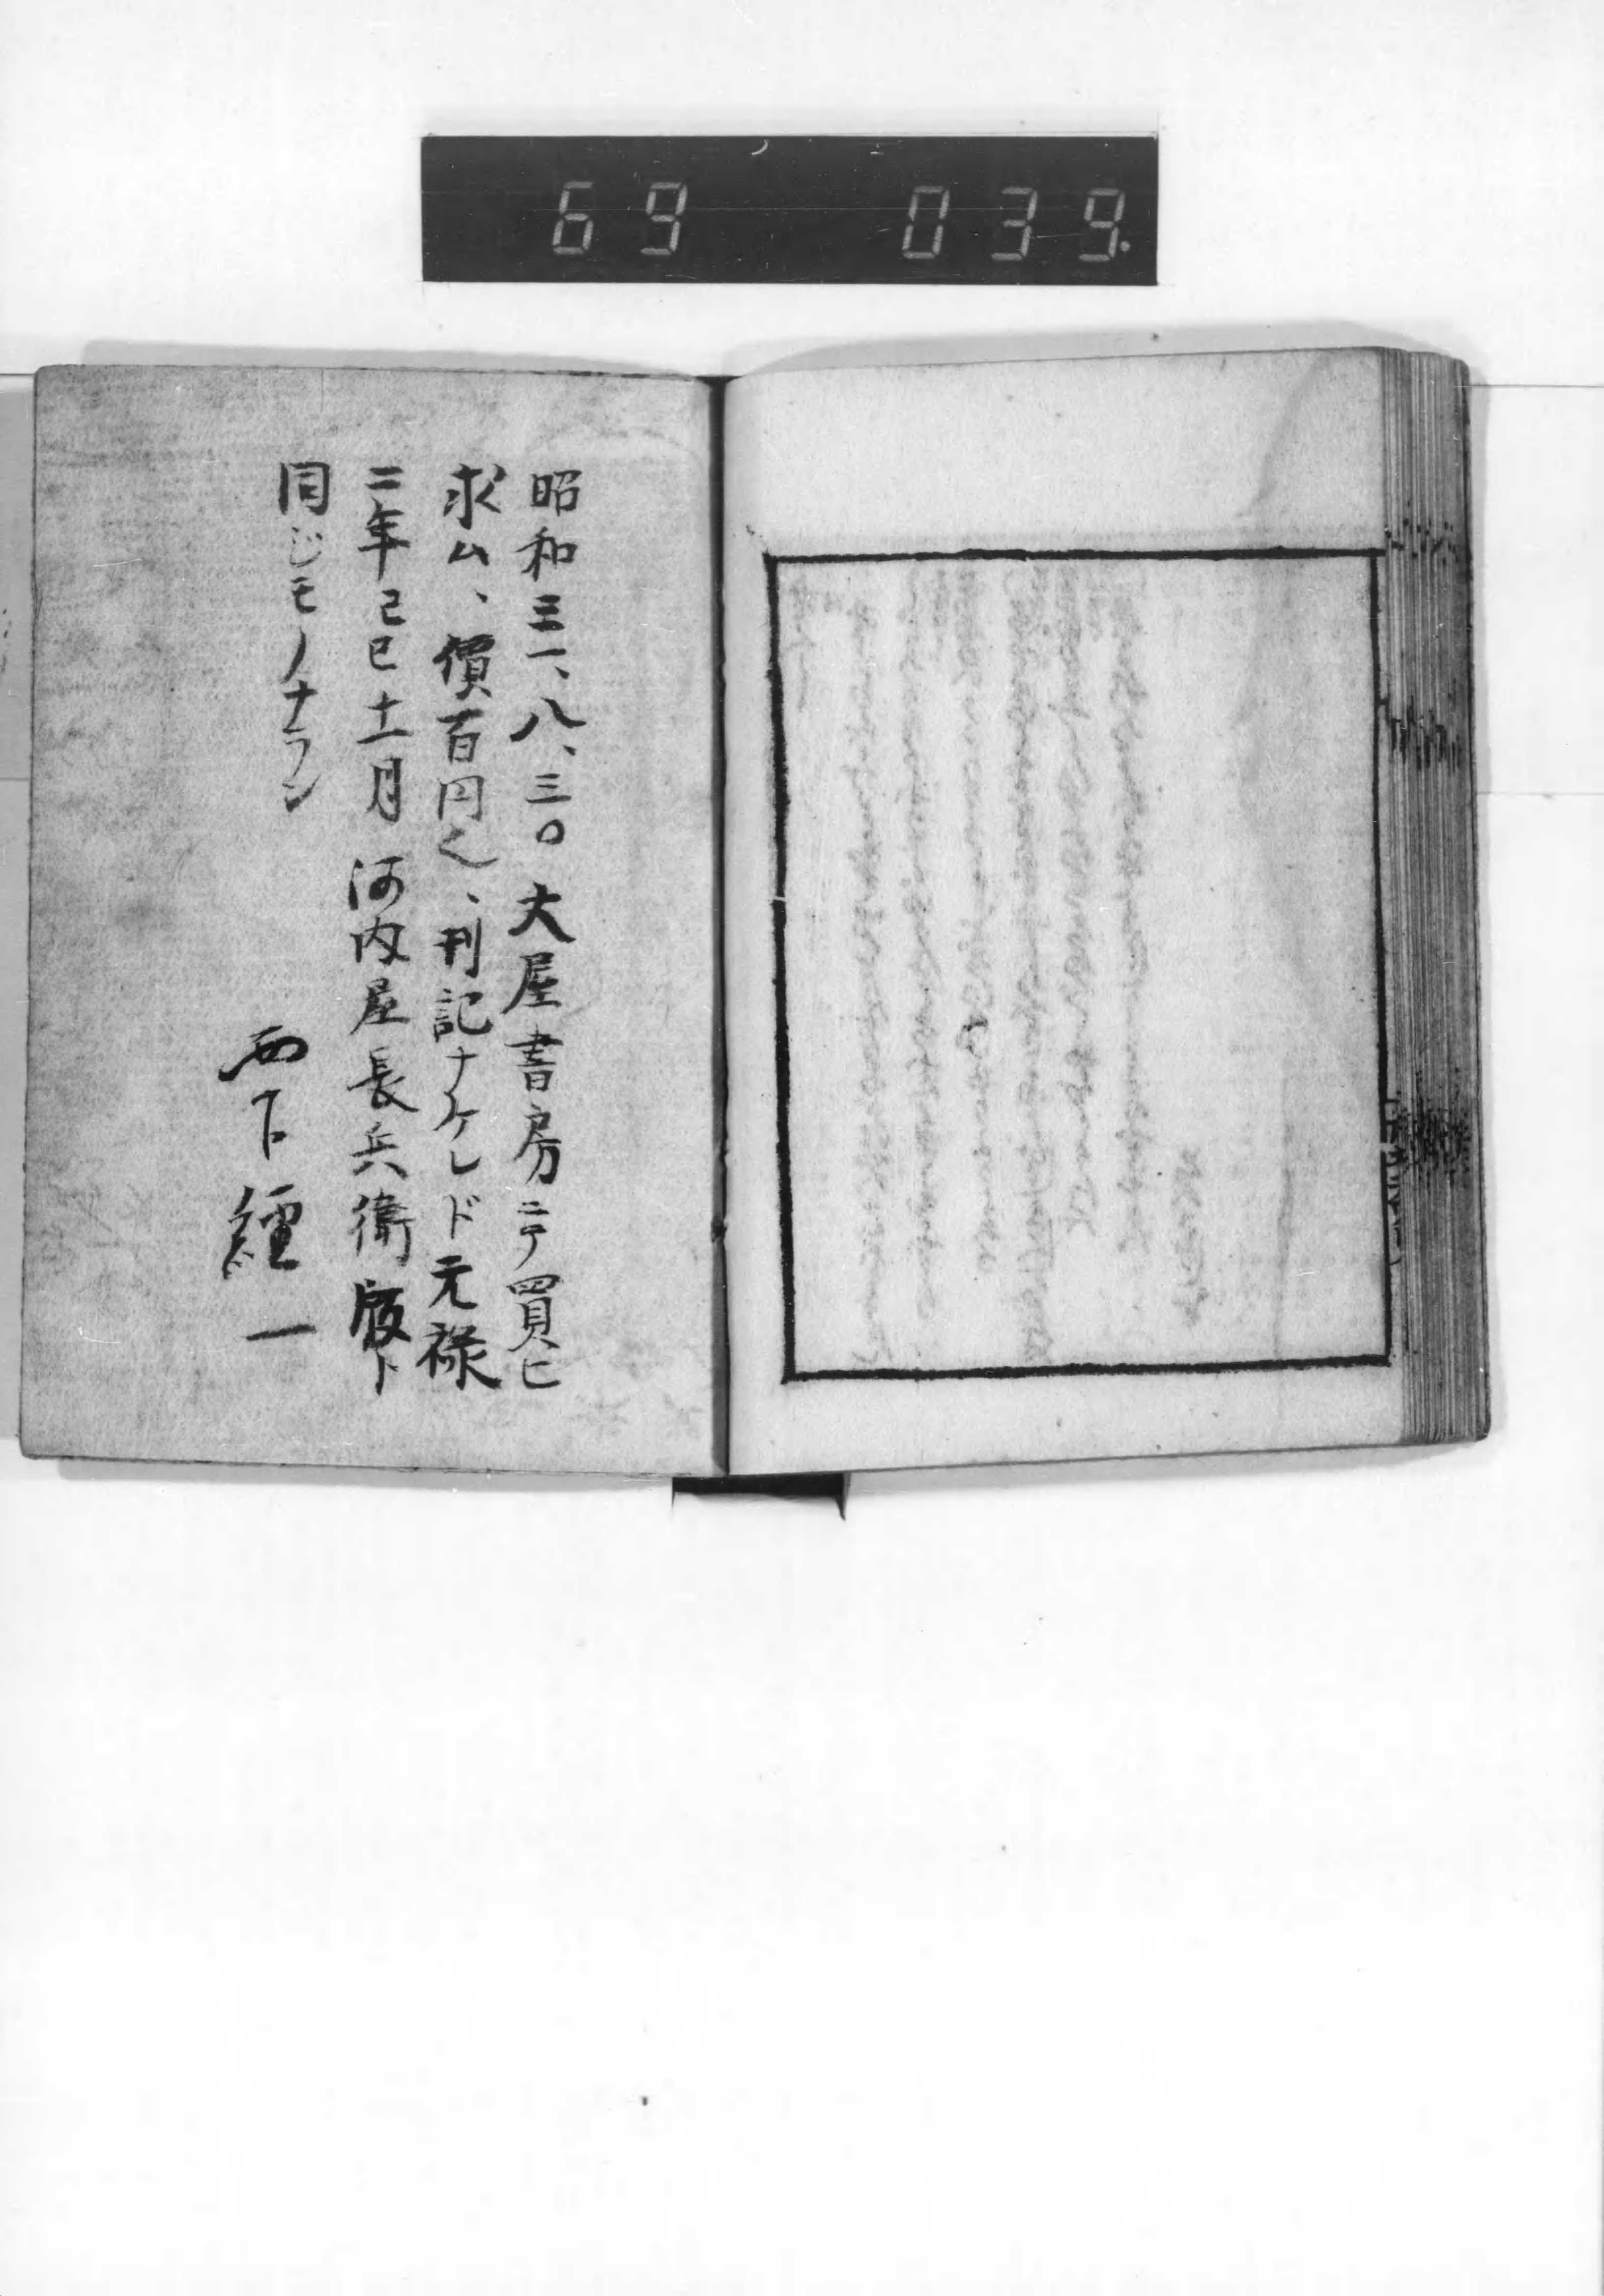 69 039
昭和三一、八、三〇大屋書房ニテ買ヒ
求ム、價百円也、刊記ナケレド元禄
二年己巳十一月河内屋長兵衛版ト
同ジモノナラン
西下經一